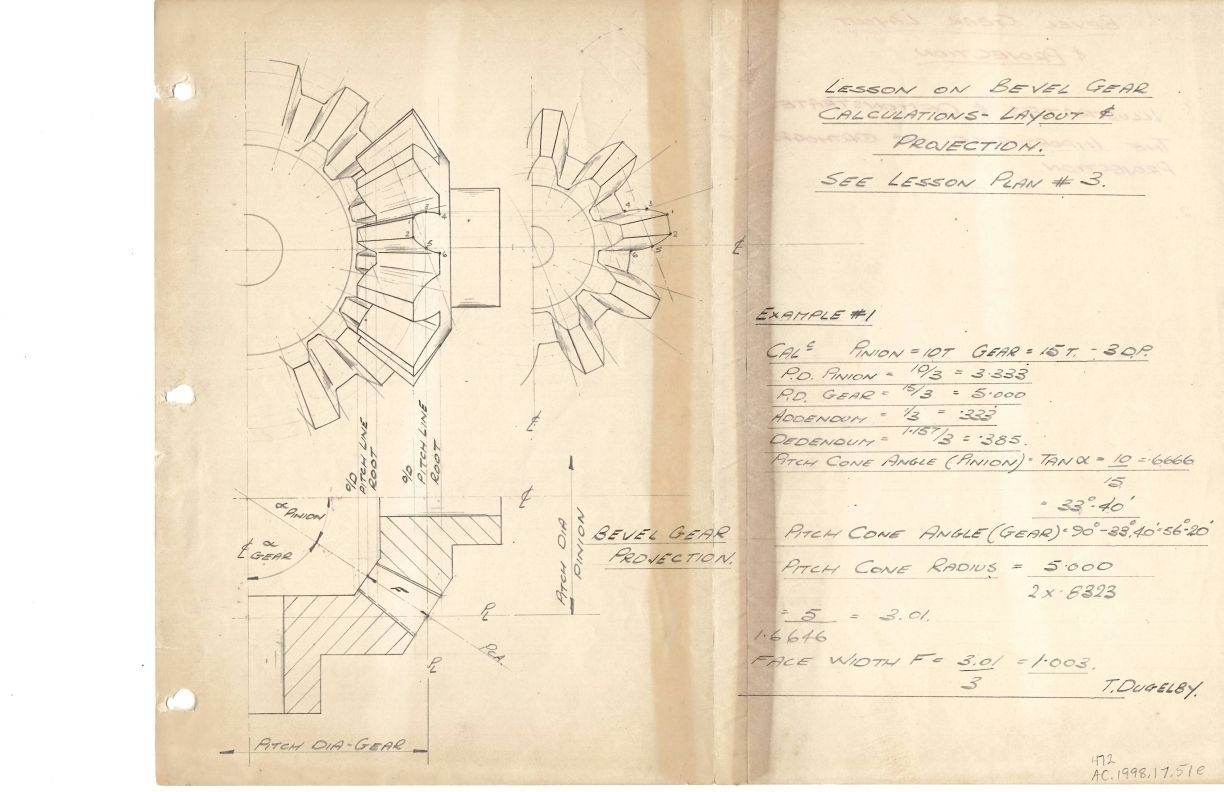 LESSON ON BEVEL GEAR
CALCULATIONS- LAYOUT &
PROJECTION.
SEE LESSON PLAN # 3.
EXAMPLE #1
CALS PINION = 10T GEAR = 15T. - 3 D.P.
P.D. PINION = 10/3 = 3.333
P.D. GEAR = 15/3 = 5.000
ADDENDUM = 1/3 = .333
DEDENDUM = 1.157/3 = .385.
PITCH CONE ANGLE (PINION) = TAN α = 10 = .6666
15
= 33°.40'
PITCH CONE ANGLE (GEAR) = 90°-33°.40' = 56°.20'
PITCH CONE RADIUS = 5.000
2 x .8323
= 5 = 3.01.
1.6646
FACE WIDTH F = 3.01 = 1.003.
3
T. DUGELBY.
472
AC.1998.17.51e
BEVEL GEAR
PROJECTION.
O/D
PITCH LINE
ROOT
O/D
PITCH LINE
ROOT
α PINION
α
GEAR
PITCH DIA
PINION
PL
PCA.
PL
PITCH DIA-GEAR
1
2
3
4
5
6
4
3
1
2
5
6